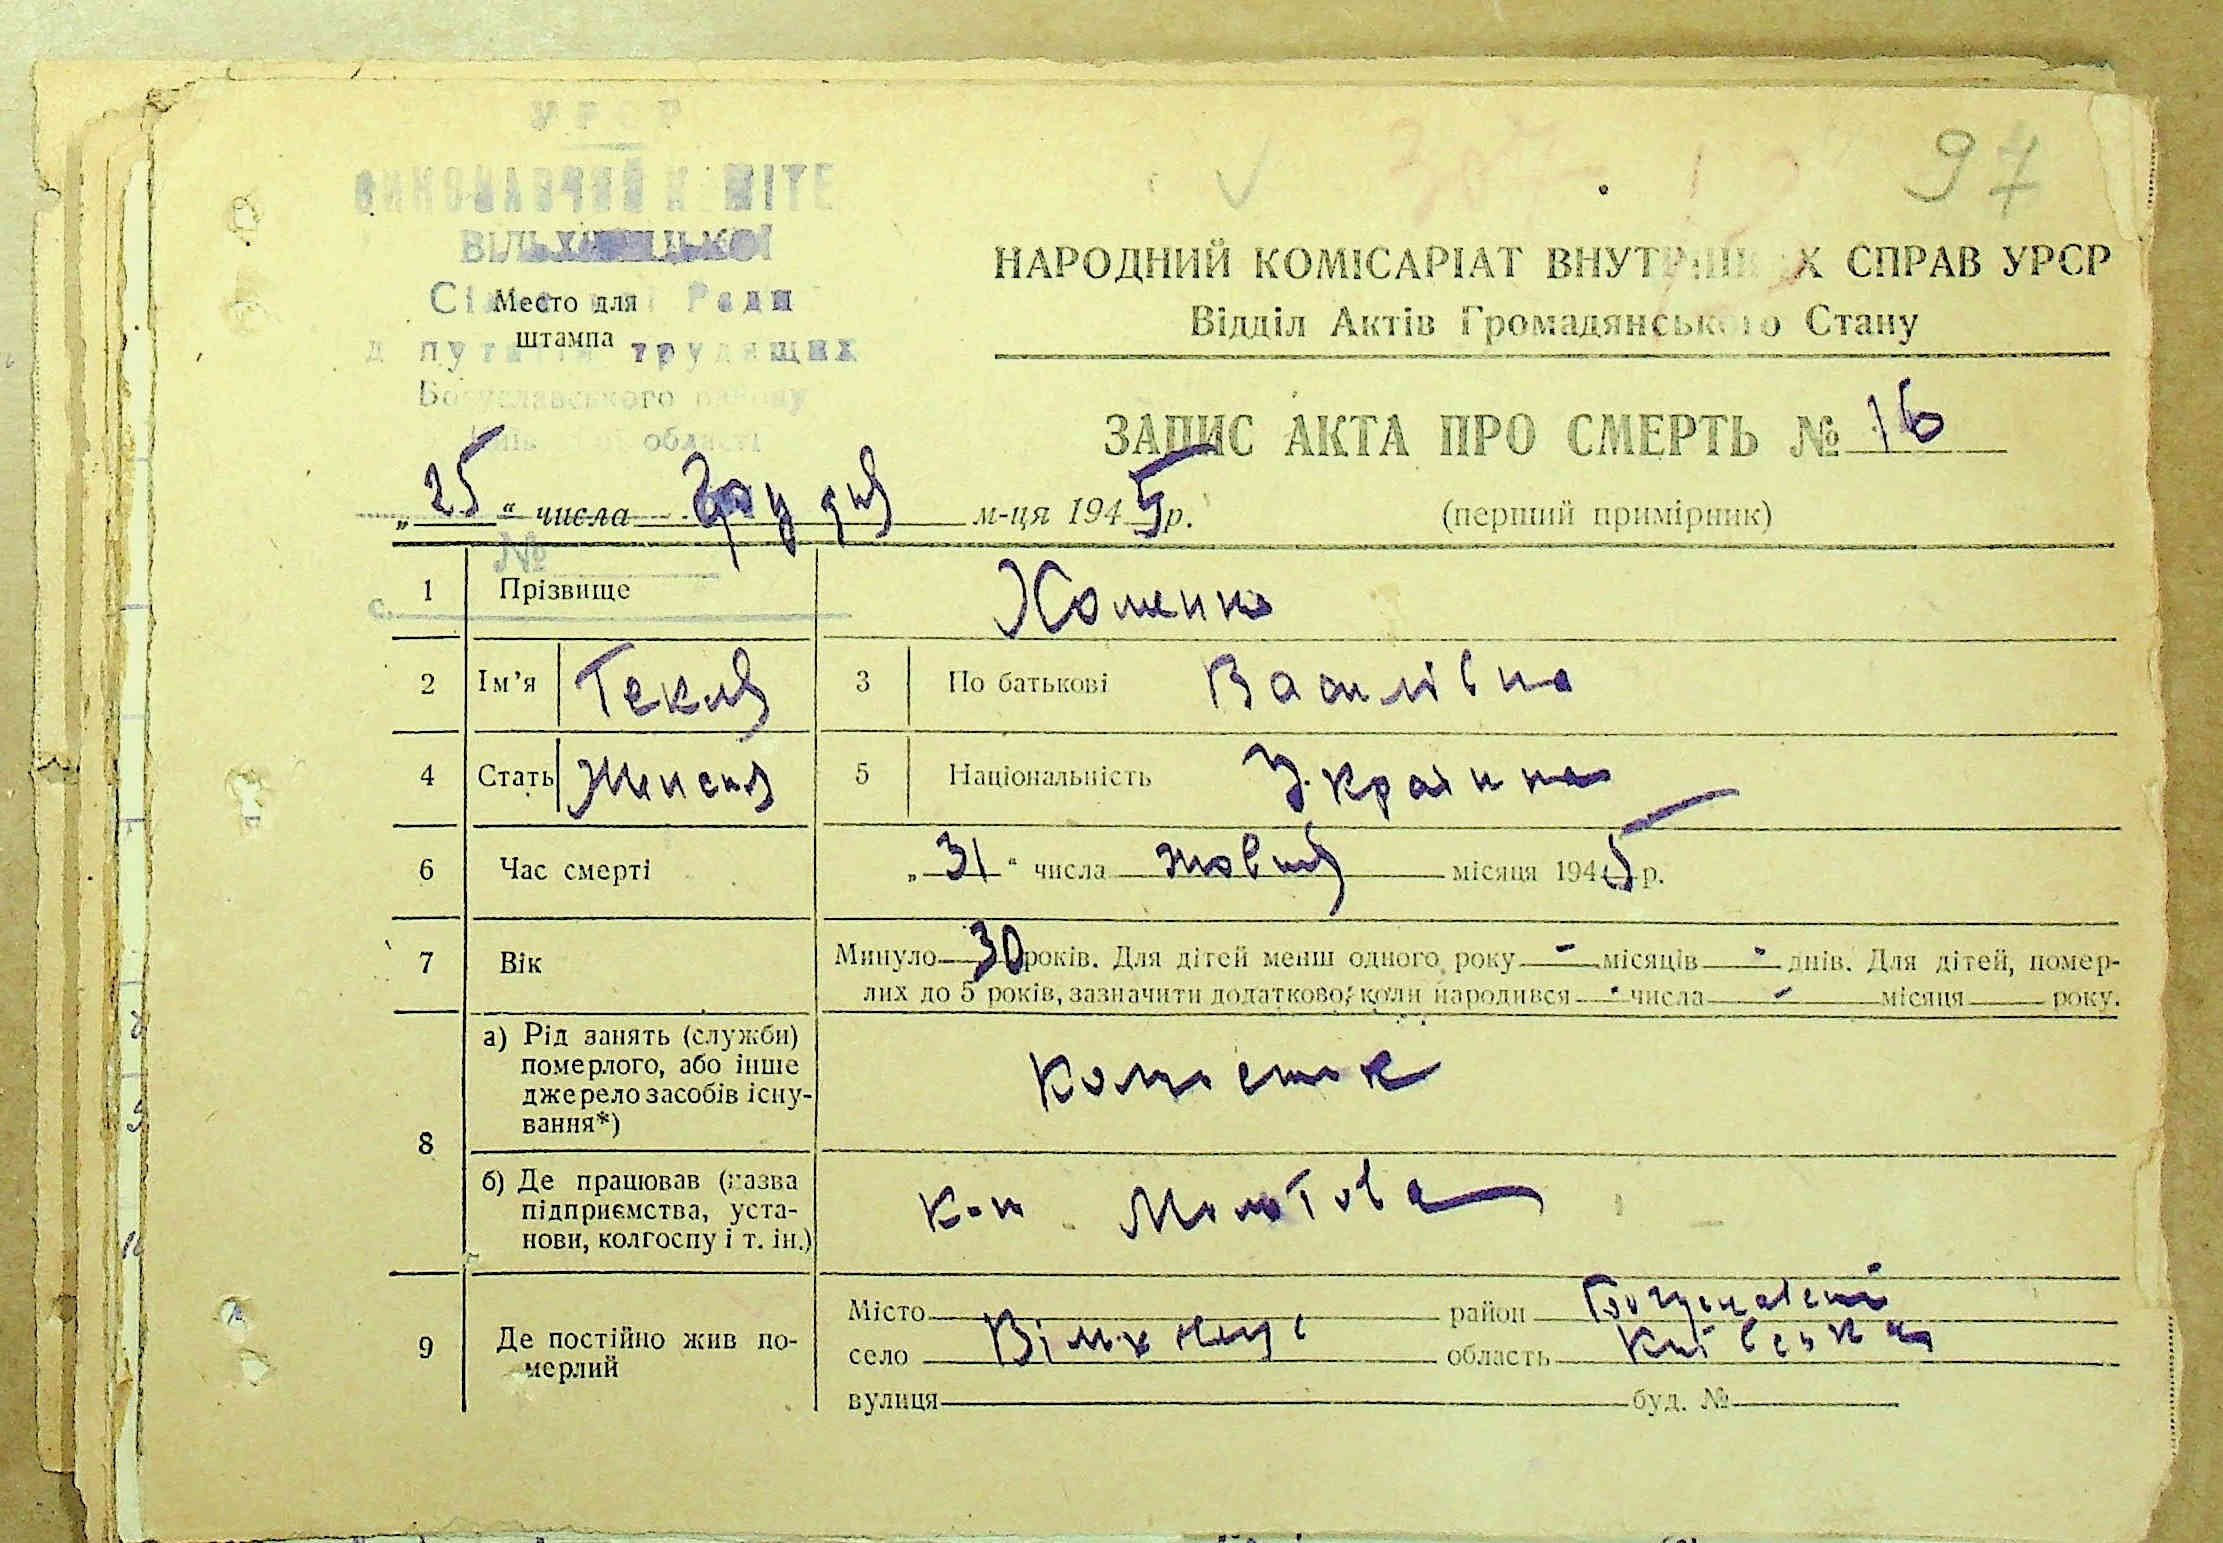 УРСР
ВИКОНАВЧИЙ К МІТЕ
Місто для
97
НАРОДНИЙ КОМІСАРІАТ ВНУТРІШНІХ СПРАВ УРСР
Сіл Место для ї Ради
штампа
Відділ Актів Громадянського Стану
д путатів трудящих
Богуславського району
області
ЗАПИС АКТА ПРО СМЕРТЬ № 16
„25“ числа Грудня м-ця 1945 р. (перший примірник)
№
1 Прізвище Хоменко
2 Ім’я Текля 3 По батькові Василівна
4 Стать Женская 5 Національність Украінка
6 Час смерті „31“ числа жовтня місяця 1945 р.
7 Вік Минуло 30 років. Для дітей менш одного року - місяців - днів. Для дітей, помер-
лих до 5 років, зазначити додатково, коли народився - числа - місяця року.
8 а) Рід занять (служби)
померлого, або інше
джерело засобів існу-
вання*)
б) Де працював (назва
підприємства, уста-
нови, колгоспу і т. ін.)
Молотова
9 Де постійно жив по-
мерлий
Місто район Богуславский
село область Київська
вулиця буд. №